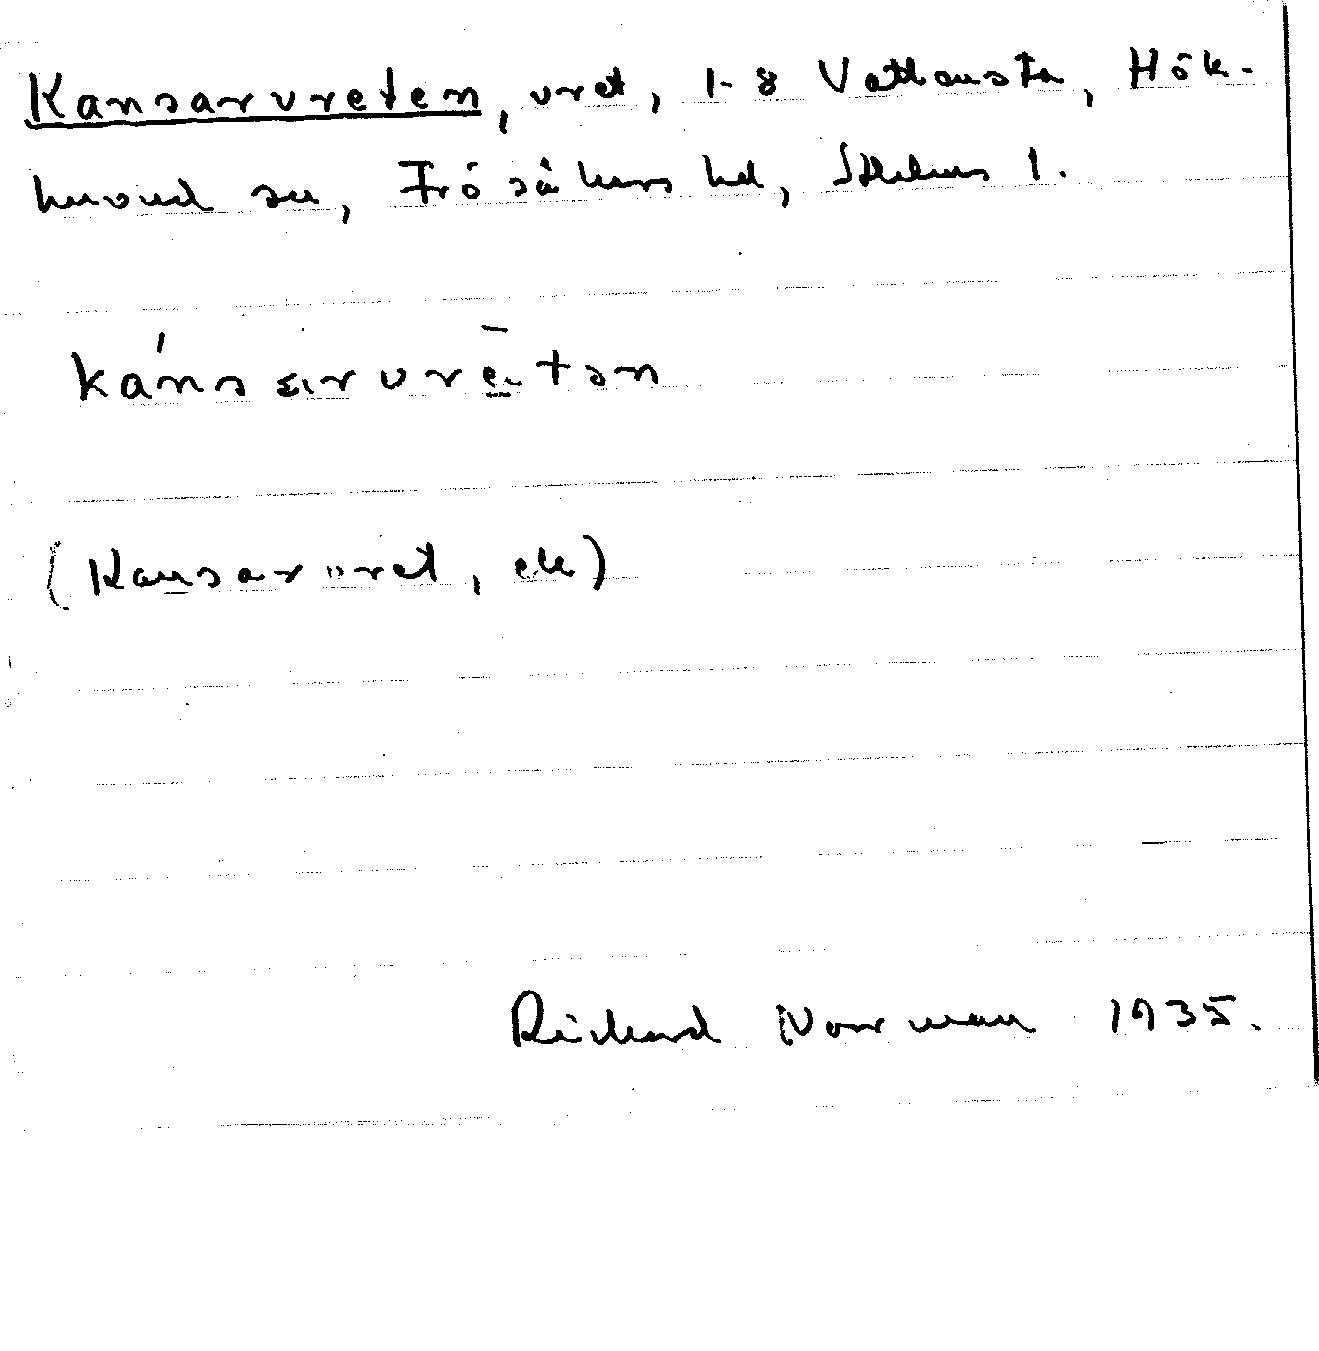 Kansarvreten, vret, 1-8 Vattensta, Hök-
huvud sn, Frösåkers hd, Sthlms l.
ká'nsarvrētən
(Kansarvret, ek)
Richard Norrman 1935.